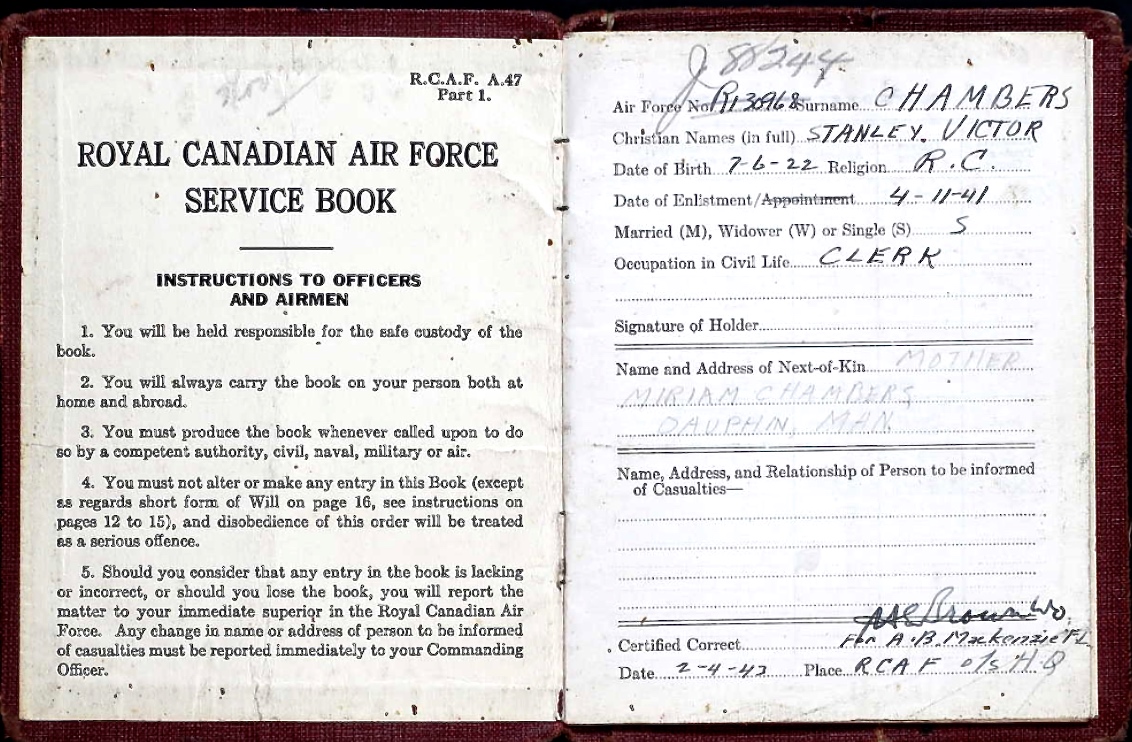 R.C.A.F. A.47
Part 1.
ROYAL CANADIAN AIR FORCE
SERVICE BOOK
INSTRUCTIONS TO OFFICERS
AND AIRMEN
1. You will be held responsible for the safe custody of the
book.
2. You will always carry the book on your person both at
home and abroad.
3. You must produce the book whenever called upon to do
so by a competent authority, civil, naval, military or air.
4. You must not alter or make any entry in this Book (except
as regards short form of Will on page 16, see instructions on
pages 12 to 15), and disobedience of this order will be treated
as a serious offence.
5. Should you consider that any entry in the book is lacking
or incorrect, or should you lose the book, you will report the
matter to your immediate superior in the Royal Canadian Air
Force. Any change in name or address of person to be informed
of casualties must be reported immediately to your Commanding
Officer.
J 88244
Air Force No. Surname CHAMBERS
Christian Names (in full) STANLEY. VICTOR
Date of Birth 7-6-22 Religion R.C.
Date of Enlistment/Appointment 4-11-41
Married (M), Widower (W) or Single (S) S
Occupation in Civil Life CLERK
Signature of Holder
Name and Address of Next-of-Kin MOTHER
MIRIAM CHAMBERS
DAUPHIN, MAN.
Name, Address, and Relationship of Person to be informed
of Casualties—
Brown Wo,
Certified Correct For A.B. Mackenzie F/L
Date 2-4-43 Place RCAF o/s H.Q